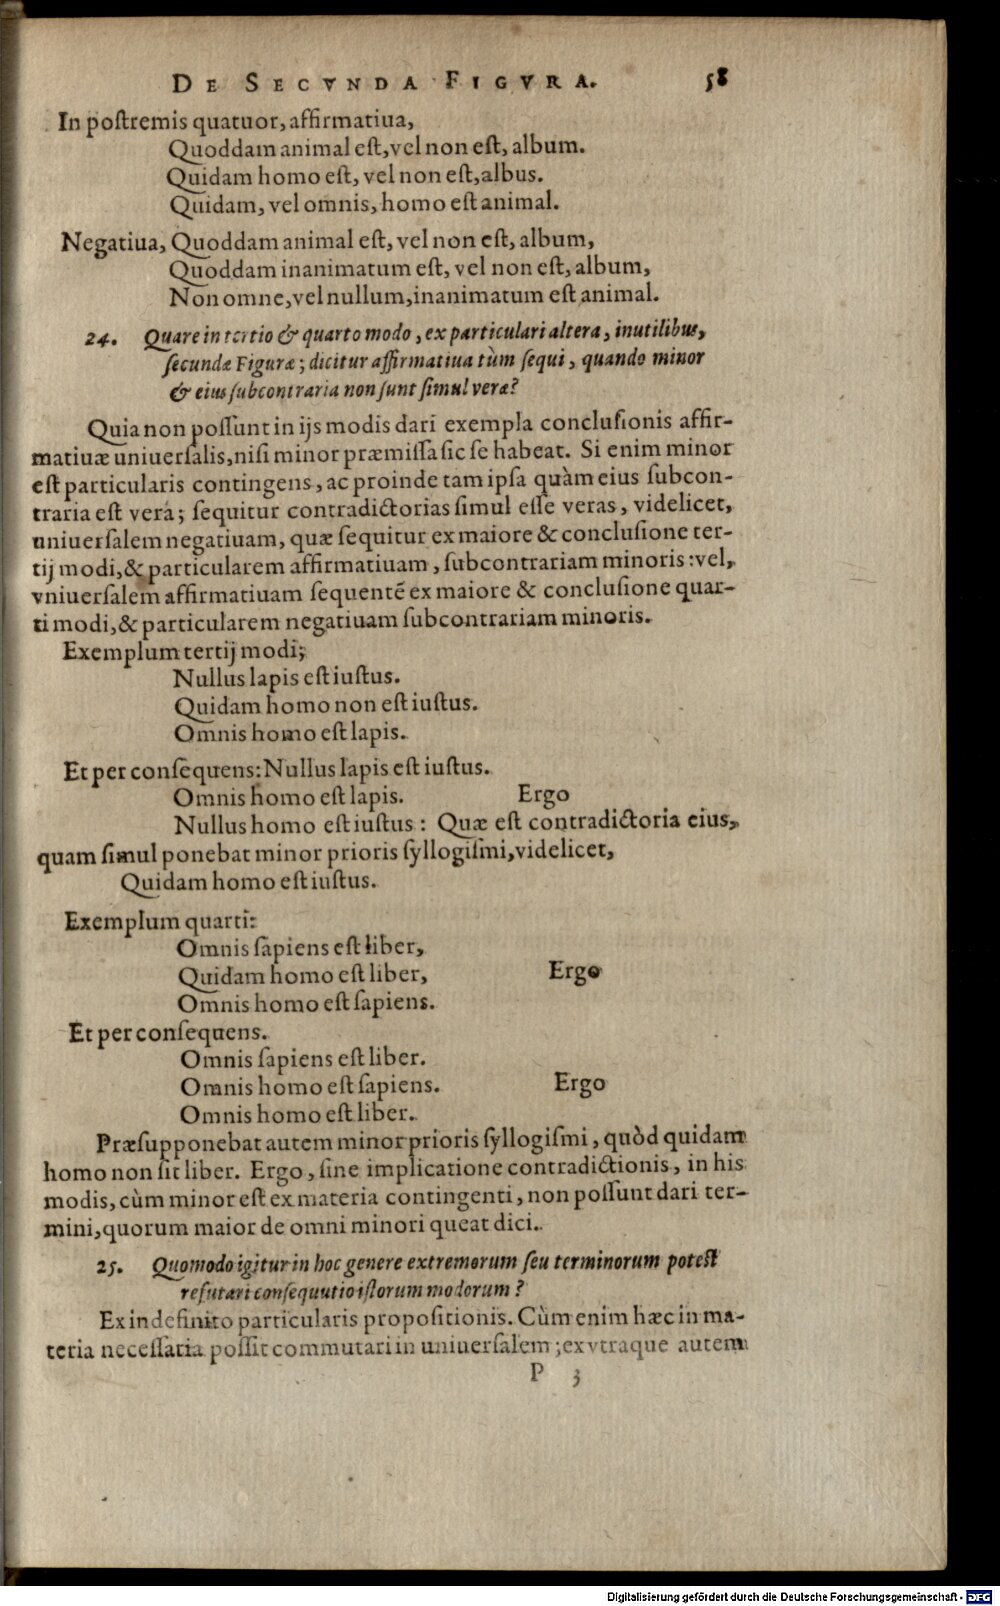 De Secvnda Figvra. 58
In postremis quatuor, affirmatiua,
Quoddam animal est, vel non est, album.
Quidam homo est, vel non est, albus.
Quidam, vel omnis, homo est animal.
Negatiua, Quoddam animal est, vel non est, album,
Quoddam inanimatum est, vel non est, album,
Non omne, vel nullum, inanimatum est animal.
24. Quare in tertio & quarto modo, ex particulari altera, inutilibus,
secundæ Figuræ; dicitur affirmatiua tùm sequi, quando minor
& eius subcontraria non sunt simul veræ?
Quia non possunt in ijs modis dari exempla conclusionis affir-
matiuæ uniuersalis, nisi minor præmissa sic se habeat. Si enim minor
est particularis contingens, ac proinde tam ipsa quàm eius subcon-
traria est vera; sequitur contradictorias simul esse veras, videlicet,
uniuersalem negatiuam, quæ sequitur ex maiore & conclusione ter-
tij modi, & particularem affirmatiuam, subcontrariam minoris: vel,
vniuersalem affirmatiuam sequentē ex maiore & conclusione quar-
ti modi, & particularem negatiuam subcontrariam minoris.
Exemplum tertij modi;
Nullus lapis est iustus.
Quidam homo non est iustus.
Omnis homo est lapis.
Et per consequens: Nullus lapis est iustus.
Omnis homo est lapis. Ergo
Nullus homo est iustus: Quæ est contradictoria eius,
quam simul ponebat minor prioris syllogismi, videlicet,
Quidam homo est iustus.
Exemplum quarti:
Omnis sapiens est liber,
Quidam homo est liber, Ergo
Omnis homo est sapiens.
Et per consequens.
Omnis sapiens est liber.
Omnis homo est sapiens. Ergo
Omnis homo est liber.
Præsupponebat autem minor prioris syllogismi, quòd quidam
homo non sit liber. Ergo, sine implicatione contradictionis, in his
modis, cùm minor est ex materia contingenti, non possunt dari ter-
mini, quorum maior de omni minori queat dici.
25. Quomodo igitur in hoc genere extremorum seu terminorum potest
refutari consequutio istorum modorum?
Ex indefinito particularis propositionis. Cùm enim hæc in ma-
teria necessaria possit commutari in uniuersalem; ex vtraque autem
P 3
Digitalisierung gefördert durch die Deutsche Forschungsgemeinschaft - DFG